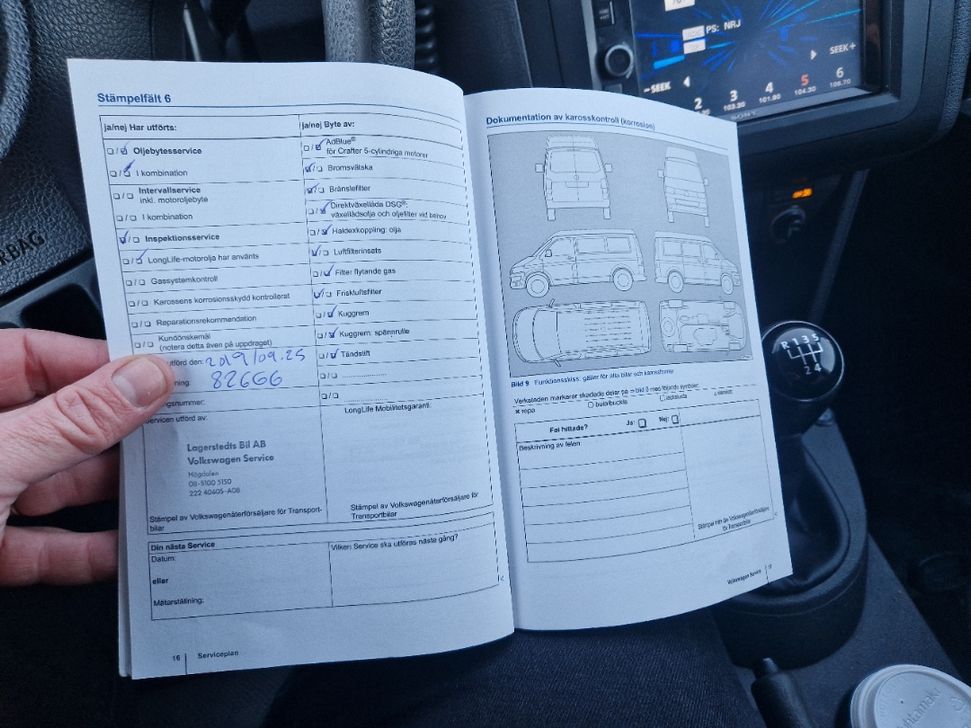 Stämpelfält 6
ja/nej Har utförts:
ja/nej Byte av:
Oljebytesservice
I kombination
Intervallservice
inkl. motoroljebyte
I kombination
Inspektionsservice
LongLife-motorolja har använts
Gassystemkontroll
Karossens korrosionsskydd kontrollerat
Reparationsrekommendation
Kundönskemål
(notera detta även på uppdraget)
utförd den: 2019/09.25
ning: 82666
gsnummer:
Servicen utförd av:
Lagerstedts Bil AB
Volkswagen Service
Högdalen
08-5100 5150
222 40405-A08
Stämpel av Volkswagenåterförsäljare för Transport-
bilar
AdBlue®
för Crafter 5-cylindriga motorer
Bromsvätska
Bränslefilter
Direktväxellåda DSG®:
växellådsolja och oljefilter vid behov
Haldexkoppling: olja
Luftfilterinsats
Filter flytande gas
Friskluftsfilter
Kuggrem
Kuggrem: spännrulle
Tändstift
LongLife Mobilitetsgaranti:
Stämpel av Volkswagenåterförsäljare för
Transportbilar
Din nästa Service
Datum:
eller
Mätarställning:
Vilken Service ska utföras nästa gång?
16 Serviceplan
Dokumentation av karosskontroll (korrosion)
Bild 9 Funktionsskiss: gäller för alla bilar och karossformer
Verkstaden markerar skadade delar på ⇒ bild 9 med följande symboler:
× repa
○ bula/buckla
Fel hittade?
Ja:
Nej:
Beskrivning av felen:
för Transportbilar
Volkswagen Service 17
PS: NRJ
SEEK
SEEK +
2 3 4 5 6
103.20 101.90 104.30 106.70
SONY
R 1 3 5
2 4
RBAG